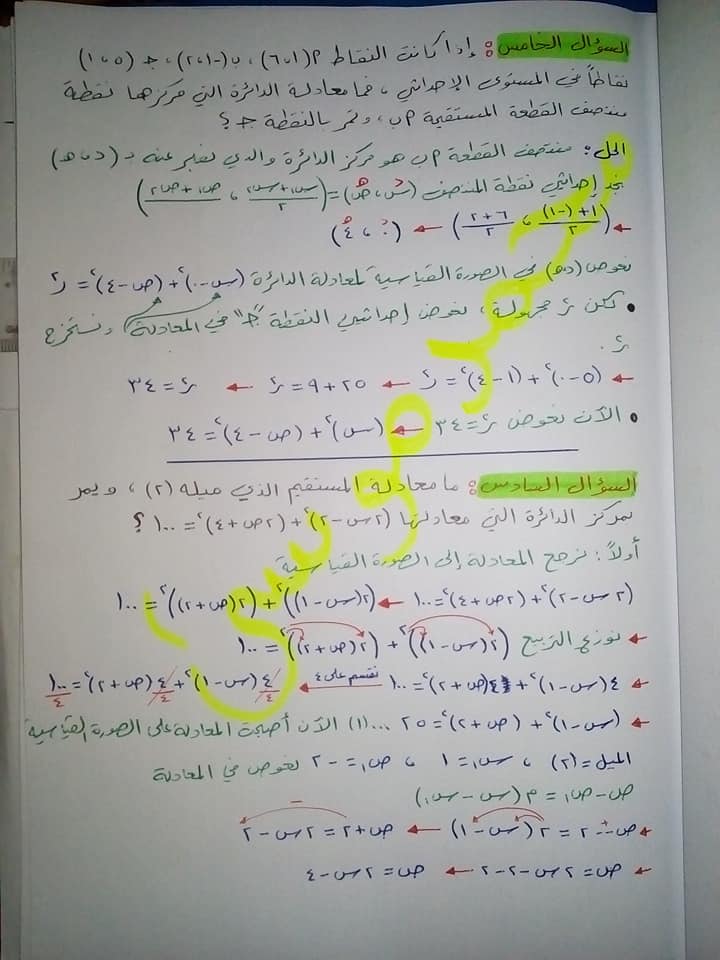 السؤال الخامس: إذا كانت النقاط م(٦،١)، ب(-٢،١)، جـ(١،٥)
نقاطاً في المستوى الإحداثي، فما معادلة الدائرة التي مركزها نقطة
منتصف القطعة المستقيمة م ب، وتمر بالنقطة جـ؟
الحل: منتصف القطعة م ب هو مركز الدائرة والذي نعبر عنه د (د، هـ)
نجد إحداثي نقطة المنتصف (س، ص) = (س١+س٢/٢ ، ص١+ص٢/٢)
← (١+(-١)/٢ ، ٦+٢/٢) ← (٠، ٤)
نعوض (د، هـ) في الصورة القياسية لمعادلة الدائرة (س-٠)²+(ص-٤)²=ر²
• لكن ر² مجهولة، نعوض إحداثيي النقطة "جـ" في المعادلة ونستخرج
ر².
← (٥-٠)²+(١-٤)²=ر² ← ٢٥+٩=ر² ← ر²=٣٤
• الآن نعوض ر²=٣٤ ← (س)²+(ص-٤)²=٣٤
السؤال السادس: ما معادلة المستقيم الذي ميله (٢)، ويمر
بمركز الدائرة التي معادلتها (٢س-٢)²+(٢ص+٤)²=١٠٠؟
أولاً: نرجع المعادلة إلى الصورة القياسية
(٢س-٢)²+(٢ص+٤)²=١٠٠ ← (٢(س-١))²+(٢(ص+٢))²=١٠٠
← نوزع التربيع (٢(س-١))²+(٢(ص+٢))²=١٠٠
← ٤(س-١)²+٤(ص+٢)²=١٠٠ نقسم على ٤ ← ٤/٤(س-١)²+٤/٤(ص+٢)²=١٠٠/٤
← (س-١)²+(ص+٢)²=٢٥ ...(١) الآن أصبحت المعادلة على الصورة القياسية
الميل=(٢)، س١=١، ص١=-٢ نعوض في المعادلة
ص-ص١=م(س-س١)
← ص--٢=٢(س-١) ← ص+٢=٢س-٢
← ص=٢س-٢-٢ ← ص=٢س-٤
محمد موسى